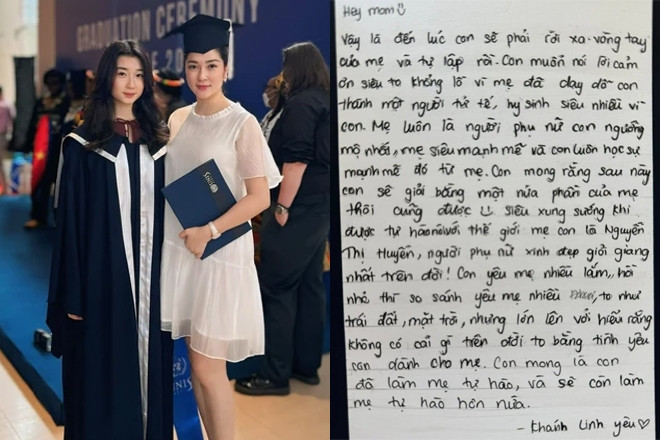 GRADUATION CEREMONY
SNIS
Hey mom
Vậy là đến lúc con sẽ phải rời xa vòng tay
của mẹ và tự lập rồi. Con muốn nói lời cảm
ơn siêu to khổng lồ vì mẹ đã dạy dỗ con
thành một người tử tế, hy sinh siêu nhiều vì
con. Mẹ luôn là người phụ nữ con ngưỡng
mộ nhất, mẹ siêu mạnh mẽ và con luôn học sự
mạnh mẽ đó từ mẹ. Con mong rằng sau này
con sẽ giỏi bằng một nửa phần của mẹ
thôi cũng được siêu sung sướng khi
được tự hào nói với thế giới mẹ con là Nguyễn
Thị Huyền, người phụ nữ xinh đẹp giỏi giang
nhất trên đời! Con yêu mẹ nhiều lắm, hồi
nhỏ thì so sánh yêu mẹ nhiều, to như
trái đất, mặt trời, nhưng lớn lên với hiểu rằng
không có cái gì trên đời to bằng tình yêu
con dành cho mẹ. Con mong là con
đã làm mẹ tự hào, và sẽ còn làm
mẹ tự hào hơn nữa.
- Khánh Linh yêu ♡